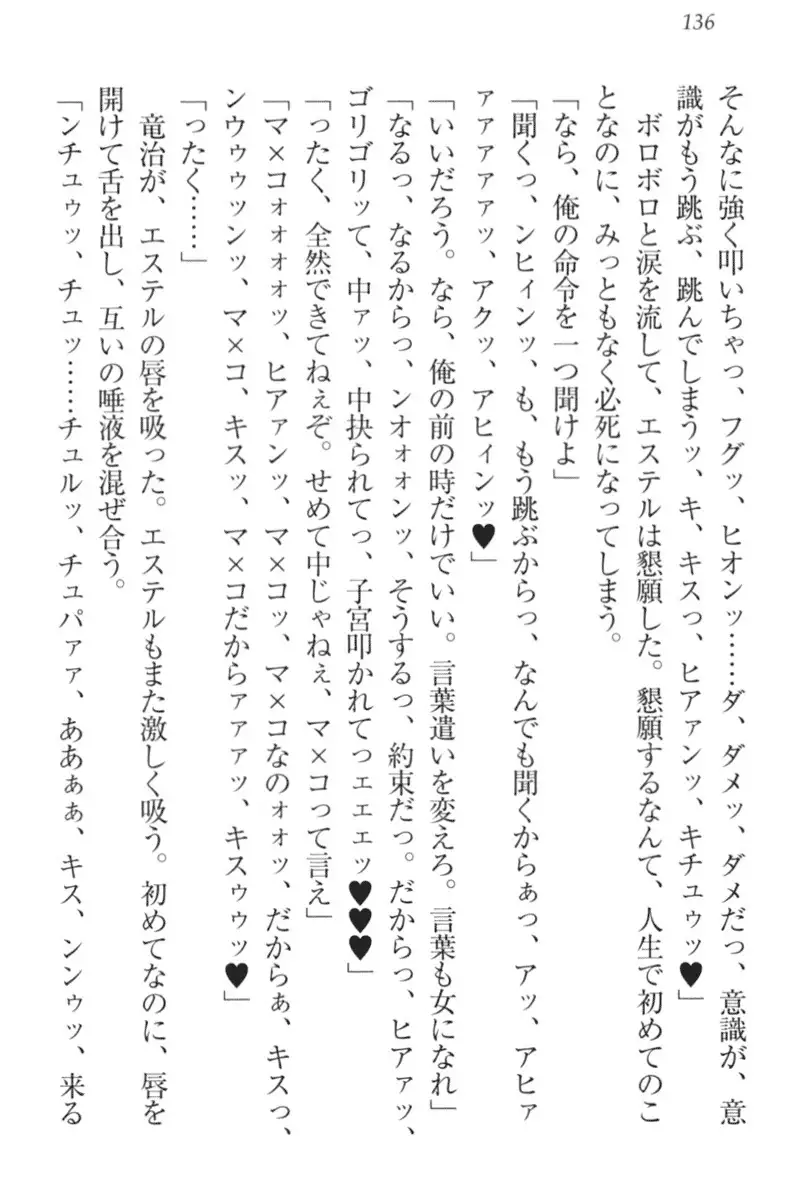 136
そんなに強く叩いちゃっ、フグッ、ヒオンッ……ダ、ダメッ、ダメだっ、意識が、意
識がもう跳ぶ、跳んでしまうッ、キ、キスっ、ヒアァンッ、キチュゥッ♥」
　ボロボロと涙を流して、エステルは懇願した。懇願するなんて、人生で初めてのこ
となのに、みっともなく必死になってしまう。
「なら、俺の命令を一つ聞けよ」
「聞くっ、ンヒィンッ、も、もう跳ぶからっ、なんでも聞くからぁっ、アッ、アヒァ
ァァァァァッ、アクッ、アヒィンッ♥」
「いいだろう。なら、俺の前の時だけでいい。言葉遣いを変えろ。言葉も女になれ」
「なるっ、なるからっ、ンオォォンッ、そうするっ、約束だっ。だからっ、ヒアァッ、
ゴリゴリッて、中ァッ、中抉られてっ、子宮叩かれてっェェェッ♥♥♥」
「ったく、全然できてねぇぞ。せめて中じゃねぇ、マ×コって言え」
「マ×コォォォォッ、ヒアァンッ、マ×コッ、マ×コなのォォッ、だからぁ、キスっ、
ンウゥゥッンッ、マ×コ、キスッ、マ×コだからァァァッ、キスゥゥッ♥」
「ったく……」
　竜治が、エステルの唇を吸った。エステルもまた激しく吸う。初めてなのに、唇を
開けて舌を出し、互いの唾液を混ぜ合う。
「ンチュゥッ、チュッ……チュルッ、チュパァァ、ああぁぁ、キス、ンンゥッ、来る